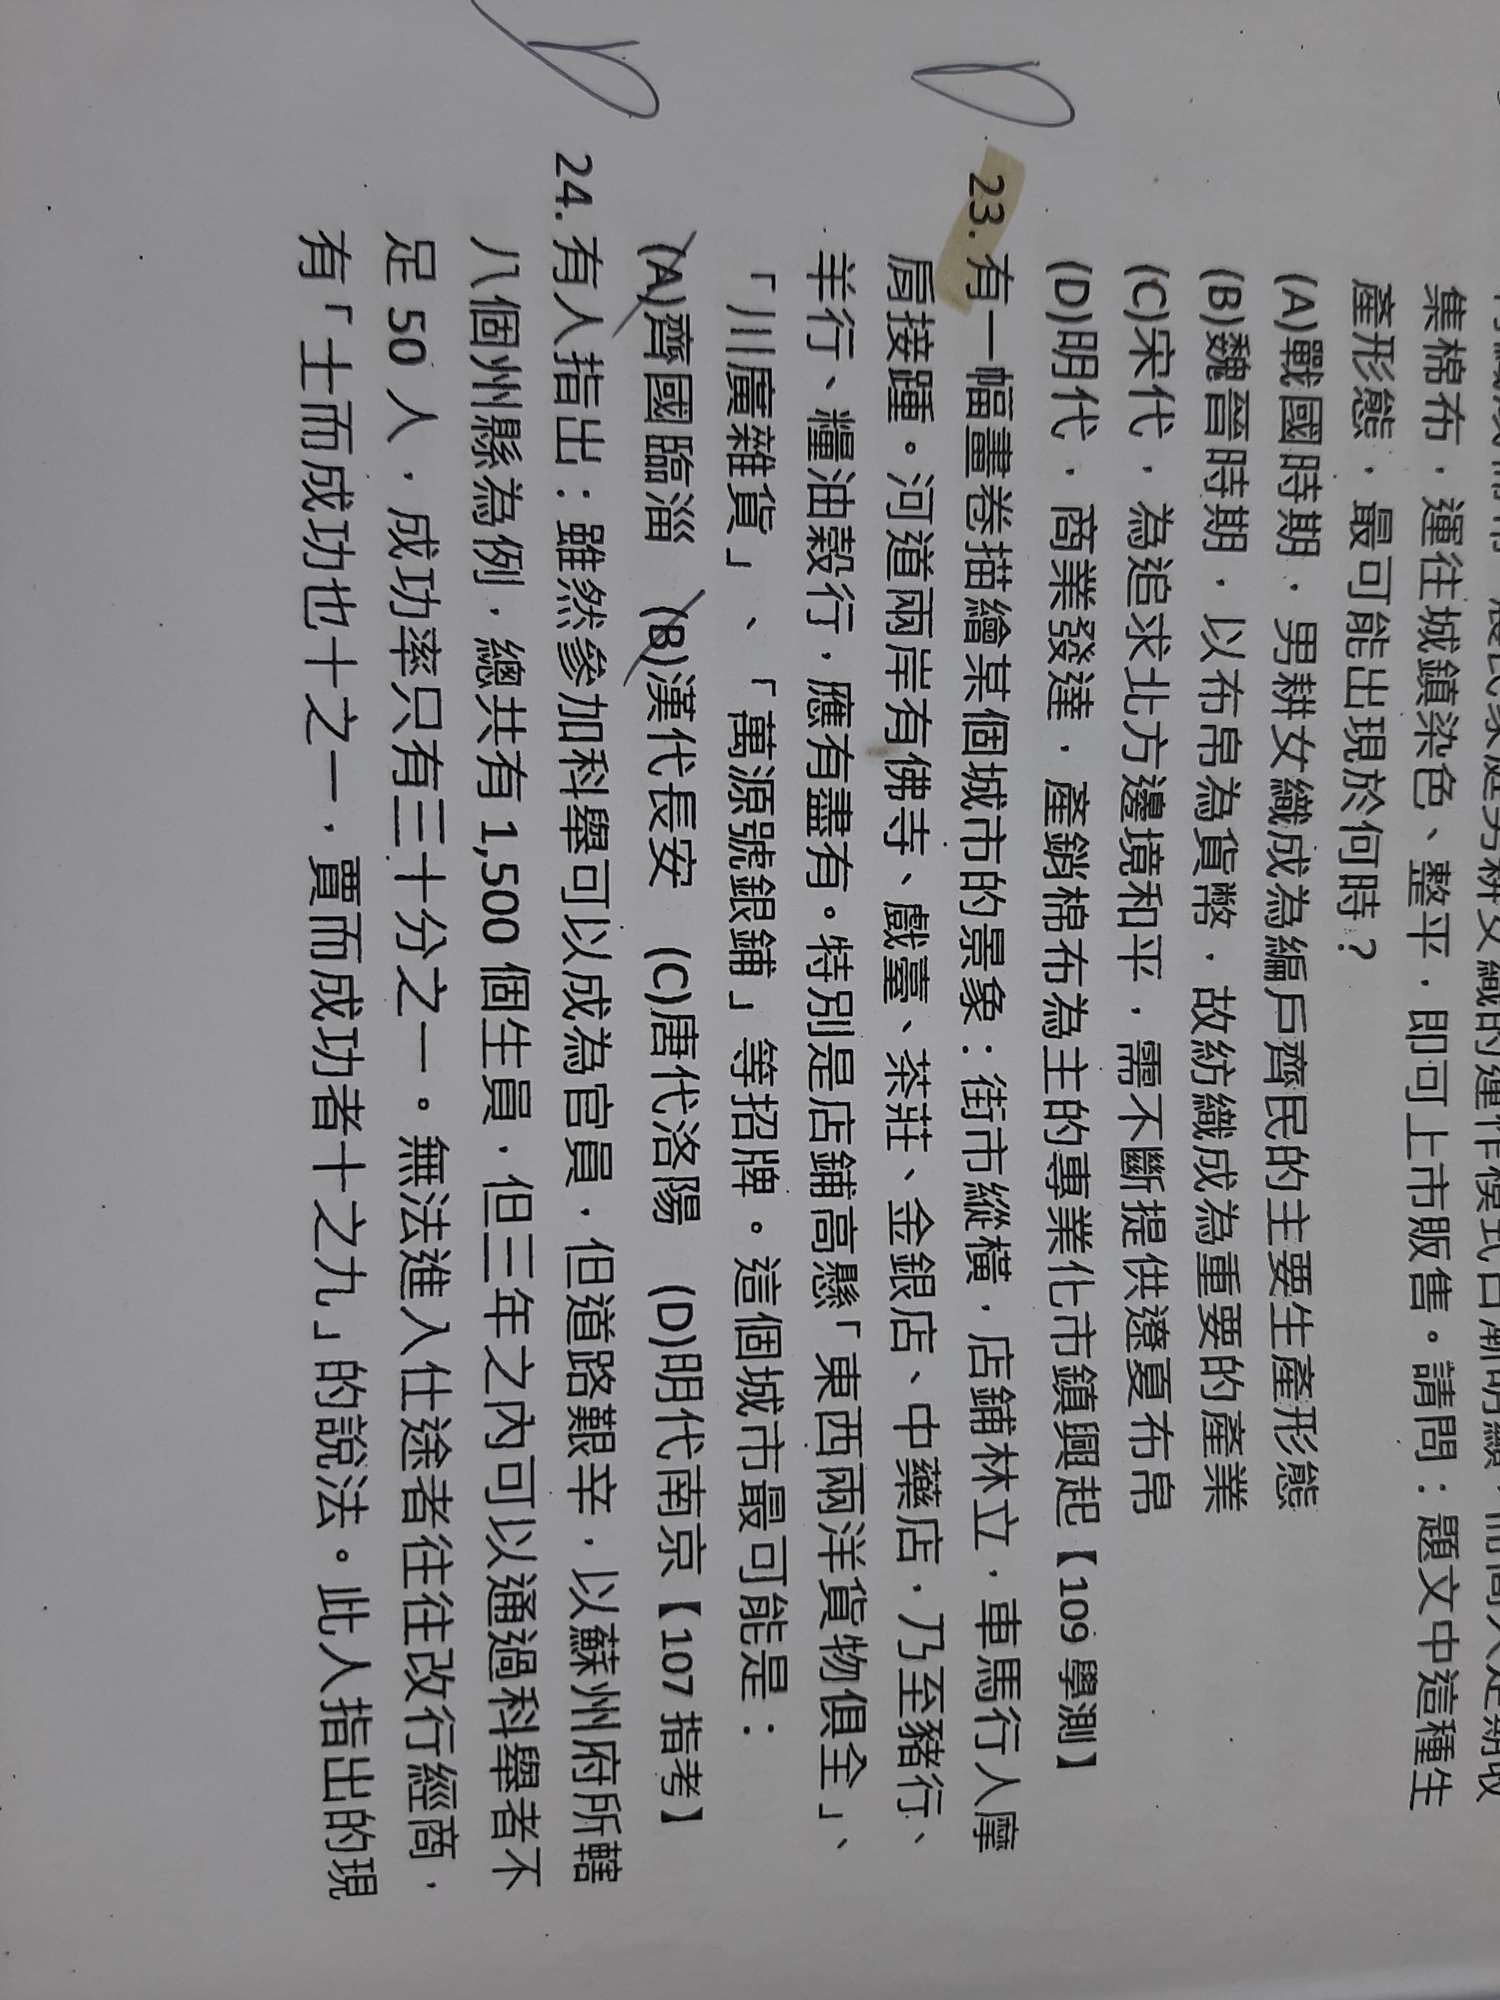 集棉布，運往城鎮染色、整平，即可上市販售。請問：題文中這種生
產形態，最可能出現於何時？
(A)戰國時期，男耕女織成為編戶齊民的主要生產形態
(B)魏晉時期，以布帛為貨幣，故紡織成為重要的產業
(C)宋代，為追求北方邊境和平，需不斷提供遼夏布帛
(D)明代，商業發達，產銷棉布為主的專業化市鎮興起【109 學測】
23. 有一幅畫卷描繪某個城市的景象：街市縱橫，店鋪林立，車馬行人摩
肩接踵。河道兩岸有佛寺、戲臺、茶莊、金銀店、中藥店，乃至豬行、
羊行、糧油穀行，應有盡有。特別是店鋪高懸「東西兩洋貨物俱全」、
「川廣雜貨」、「萬源號銀鋪」等招牌。這個城市最可能是：
(A)齊國臨淄 (B)漢代長安 (C)唐代洛陽 (D)明代南京【107 指考】
24. 有人指出：雖然參加科舉可以成為官員，但道路艱辛，以蘇州府所轄
八個州縣為例，總共有 1,500 個生員，但三年之內可以通過科舉者不
足 50 人，成功率只有三十分之一。無法進入仕途者往往改行經商，
有「士而成功也十之一，賈而成功者十之九」的說法。此人指出的現